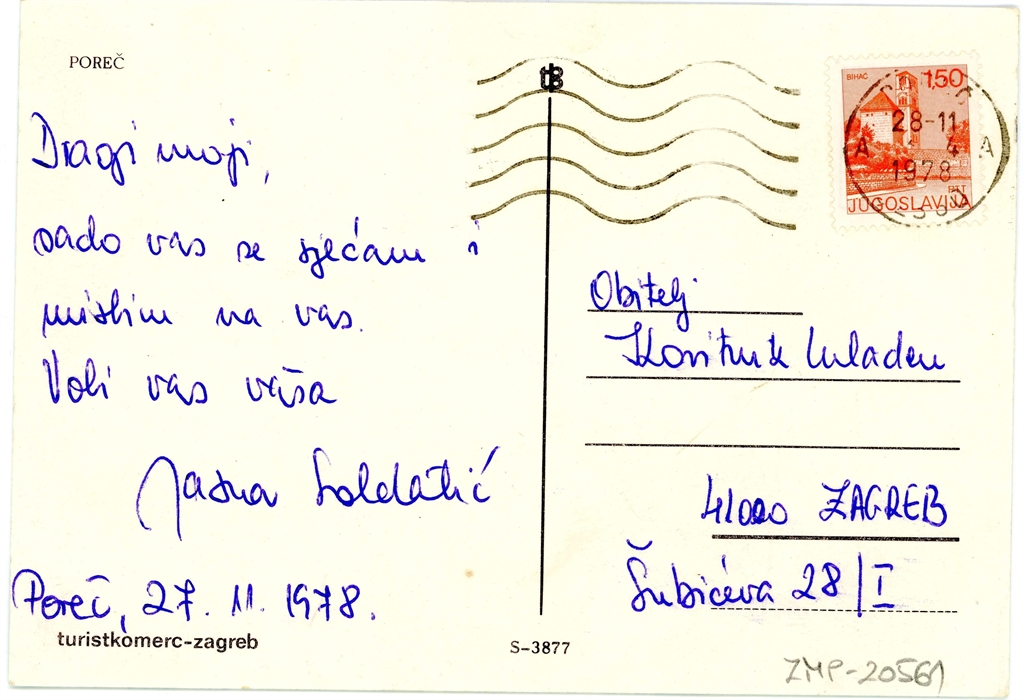 POREČ
Dragi moji,
rado vas se sjećam i
mislim na vas.
Voli vas vaša
Jasna Soldatić
Poreč, 27. 11. 1978.
turistkomerc-zagreb
S-3877
BIHAĆ
1,50
28-11
A 4 A
1978
PTT
JUGOSLAVIJA
Obitelj
Mladen
41000 ZAGREB
Šubićeva 28/I
ZMP-20561